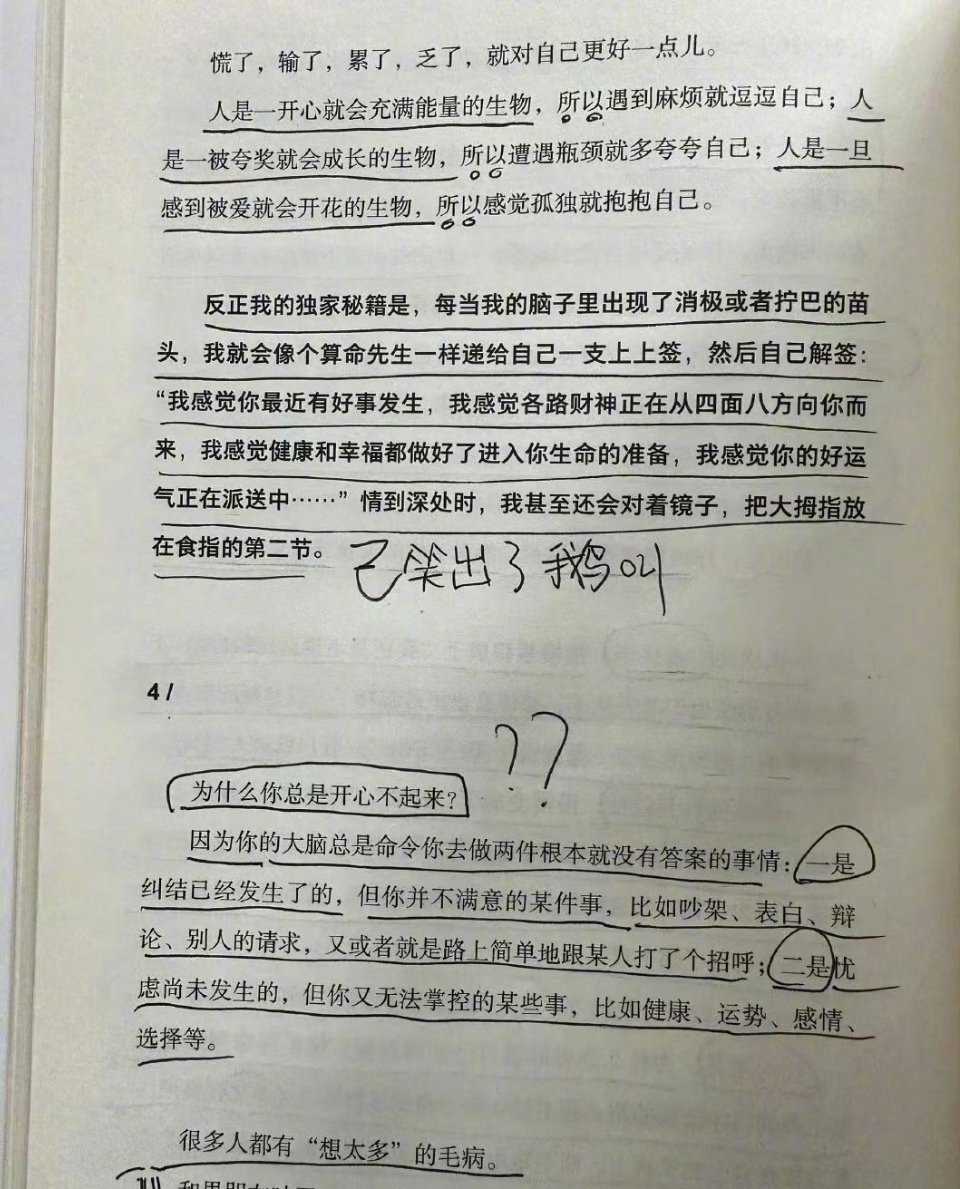 慌了，输了，累了，乏了，就对自己更好一点儿。
人是一开心就会充满能量的生物，所以遇到麻烦就逗逗自己；人
是一被夸奖就会成长的生物，所以遭遇瓶颈就多夸夸自己；人是一旦
感到被爱就会开花的生物，所以感觉孤独就抱抱自己。
反正我的独家秘籍是，每当我的脑子里出现了消极或者拧巴的苗
头，我就会像个算命先生一样递给自己一支上上签，然后自己解签：
“我感觉你最近有好事发生，我感觉各路财神正在从四面八方向你而
来，我感觉健康和幸福都做好了进入你生命的准备，我感觉你的好运
气正在派送中……”情到深处时，我甚至还会对着镜子，把大拇指放
在食指的第二节。
已笑出了鹅叫
4/
??
为什么你总是开心不起来？
因为你的大脑总是命令你去做两件根本就没有答案的事情：一是
纠结已经发生了的，但你并不满意的某件事，比如吵架、表白、辩
论、别人的请求，又或者就是路上简单地跟某人打了个招呼；二是忧
虑尚未发生的，但你又无法掌控的某些事，比如健康、运势、感情、
选择等。
很多人都有“想太多”的毛病。